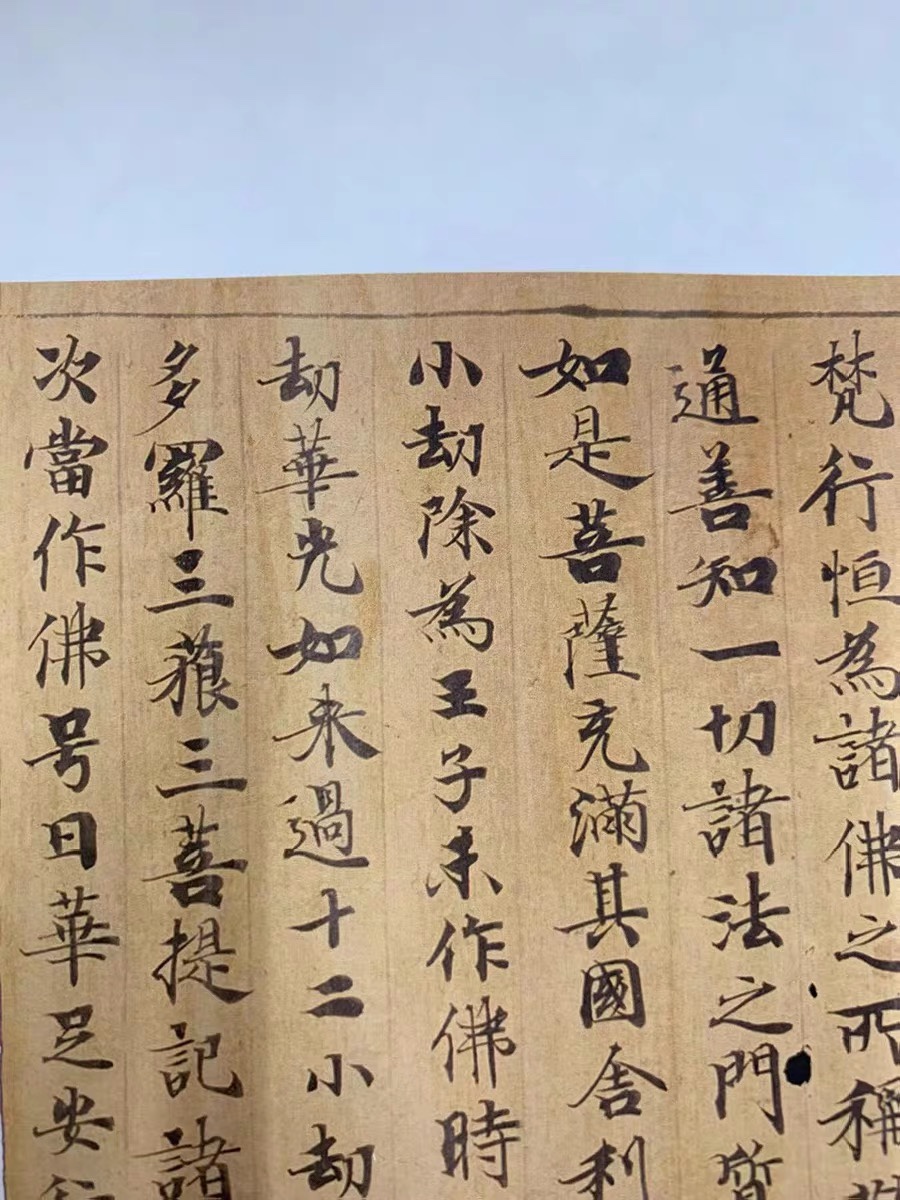 梵行恒為諸佛之所稱
通善知一切諸法之門質
如是菩薩充滿其國舍利
小劫除為王子未作佛時
劫華光如来過十二小劫
多羅三藐三菩提記諸
次當作佛号曰華足安